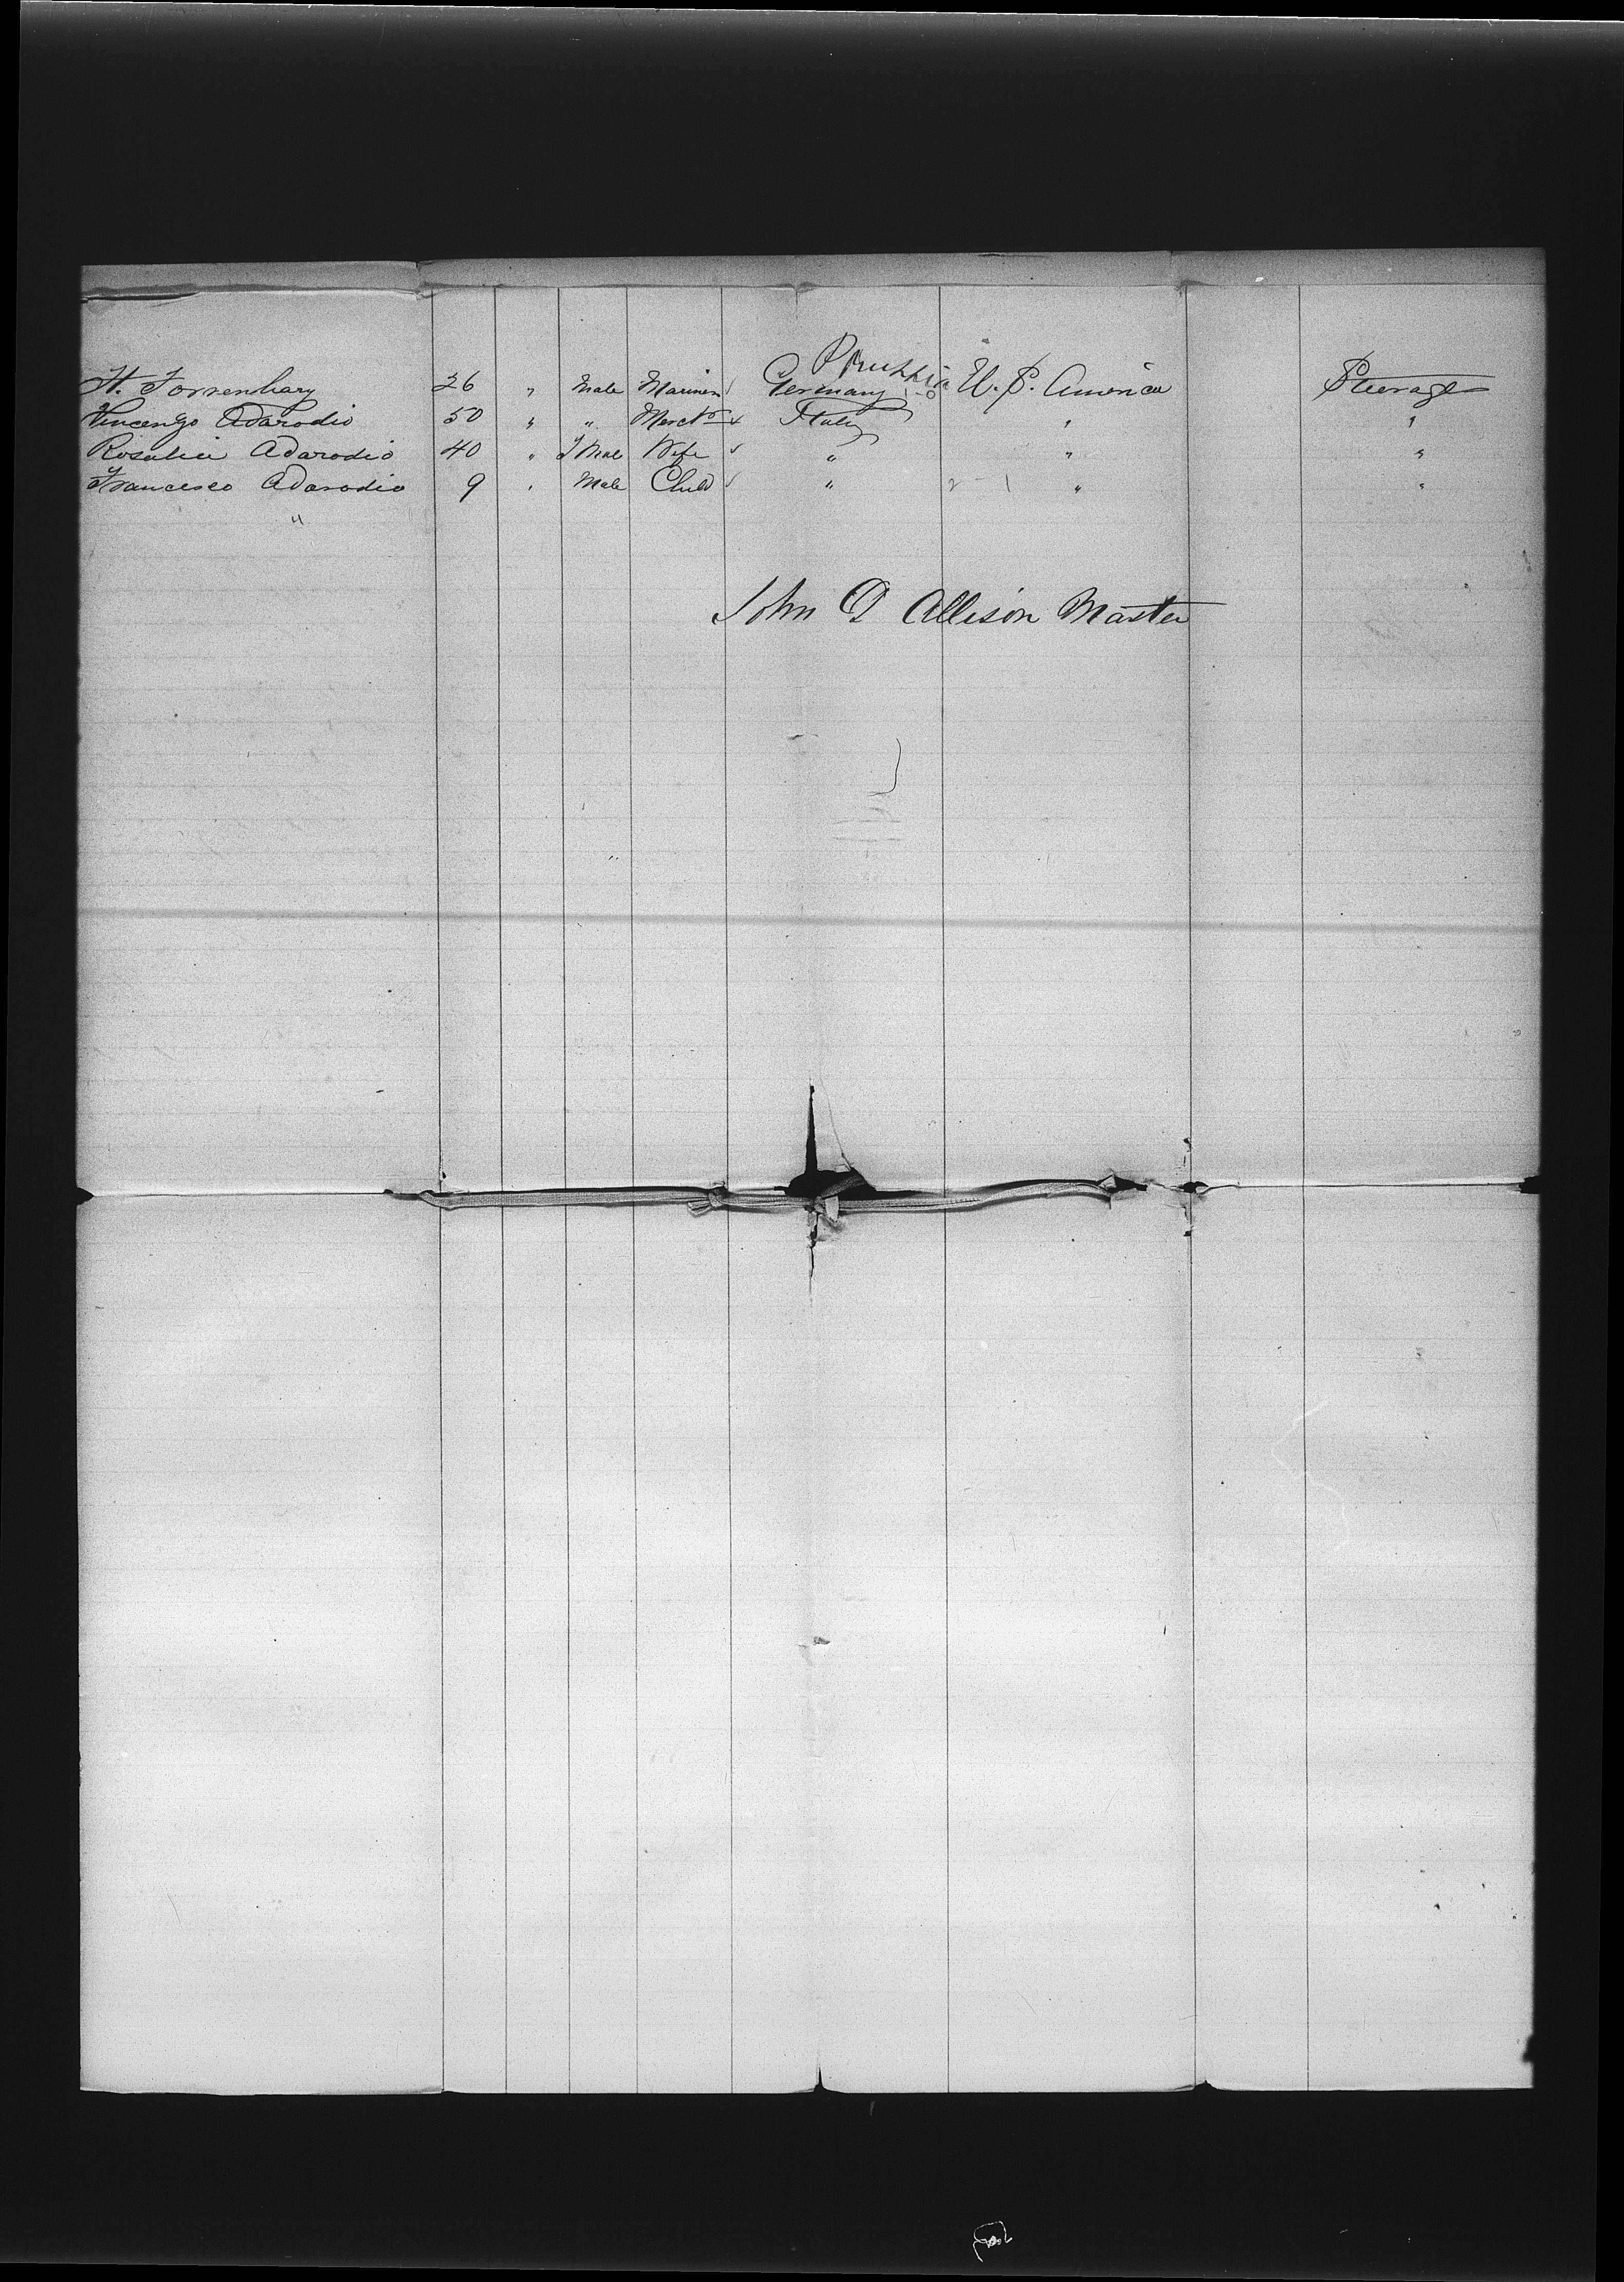 Prussia
H. Torrenhary 26 " Male Mariner Germany 1-0 U.S. America Steerage
Vincenzo Adarodio 50 " " Merct Italy " "
Rosalia Adarodio 40 " FMale Wife " " "
Francesco Adarodio 9 " Male Child " 2-1 " "
"
John D Allison Master